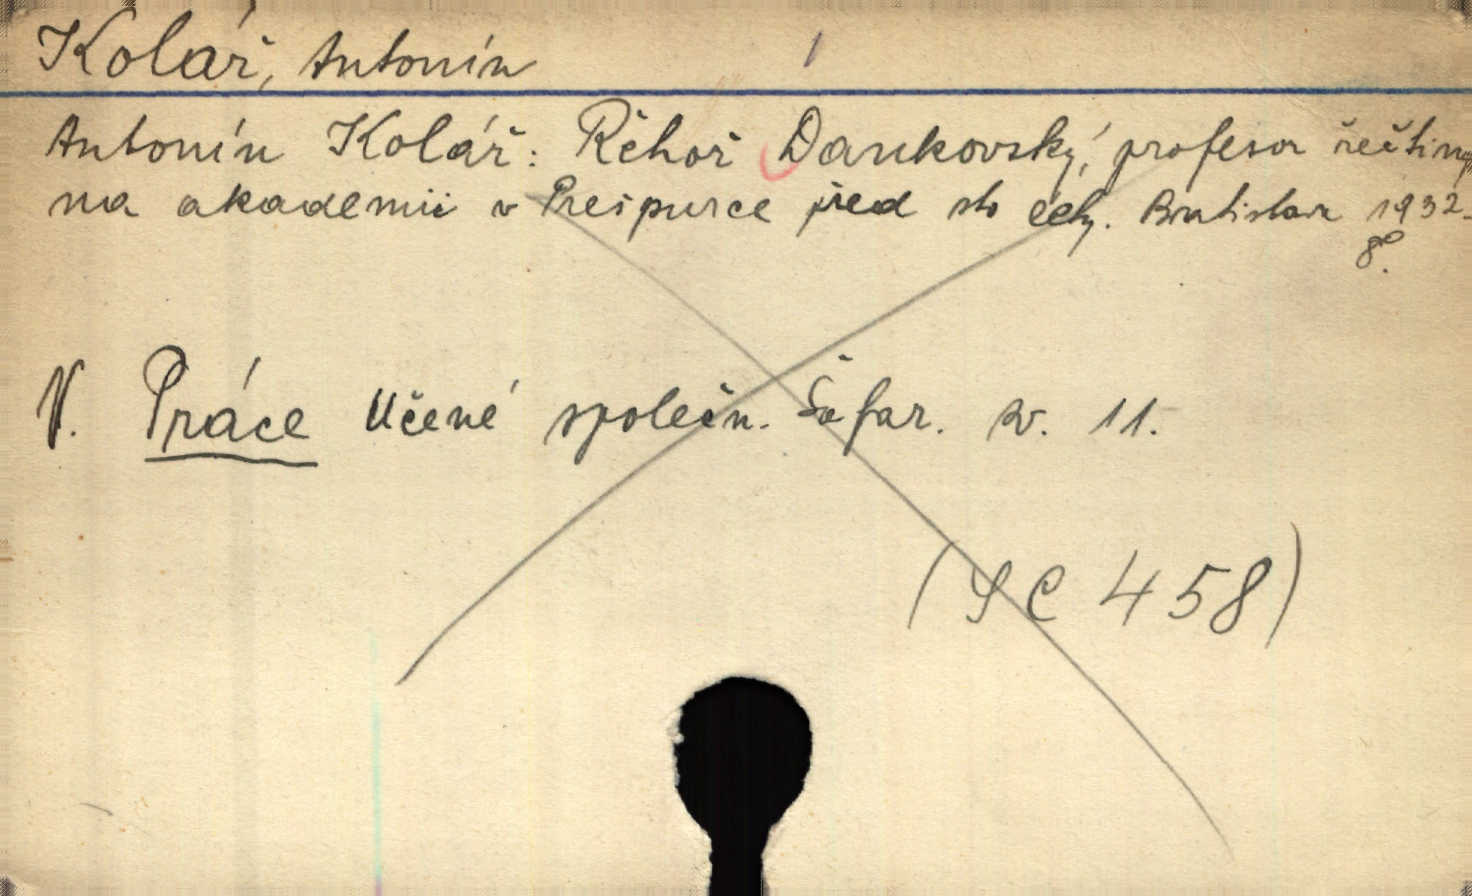 Kolář, Antonín
Antonín Kolář: Řehoř Dankovský, profesor řečtiny
na akademii v Prešpurce před sto lety. Bratislava 1932.
8°.
V. Práce Učené společn. Šafař. sv. 11.
(SC 458)